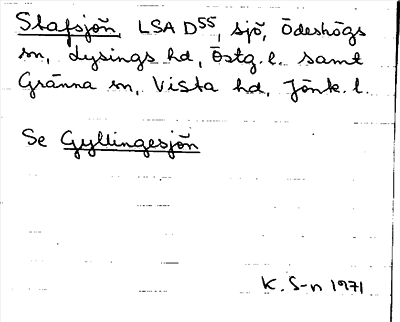 Stafsjön, LSA D55, sjö, Ödeshögs
sn, Lysings hd, Östg. l. samt
Gränna sn, Vista hd, Jönk. l.
Se Gyllingesjön
K. S-n 1971